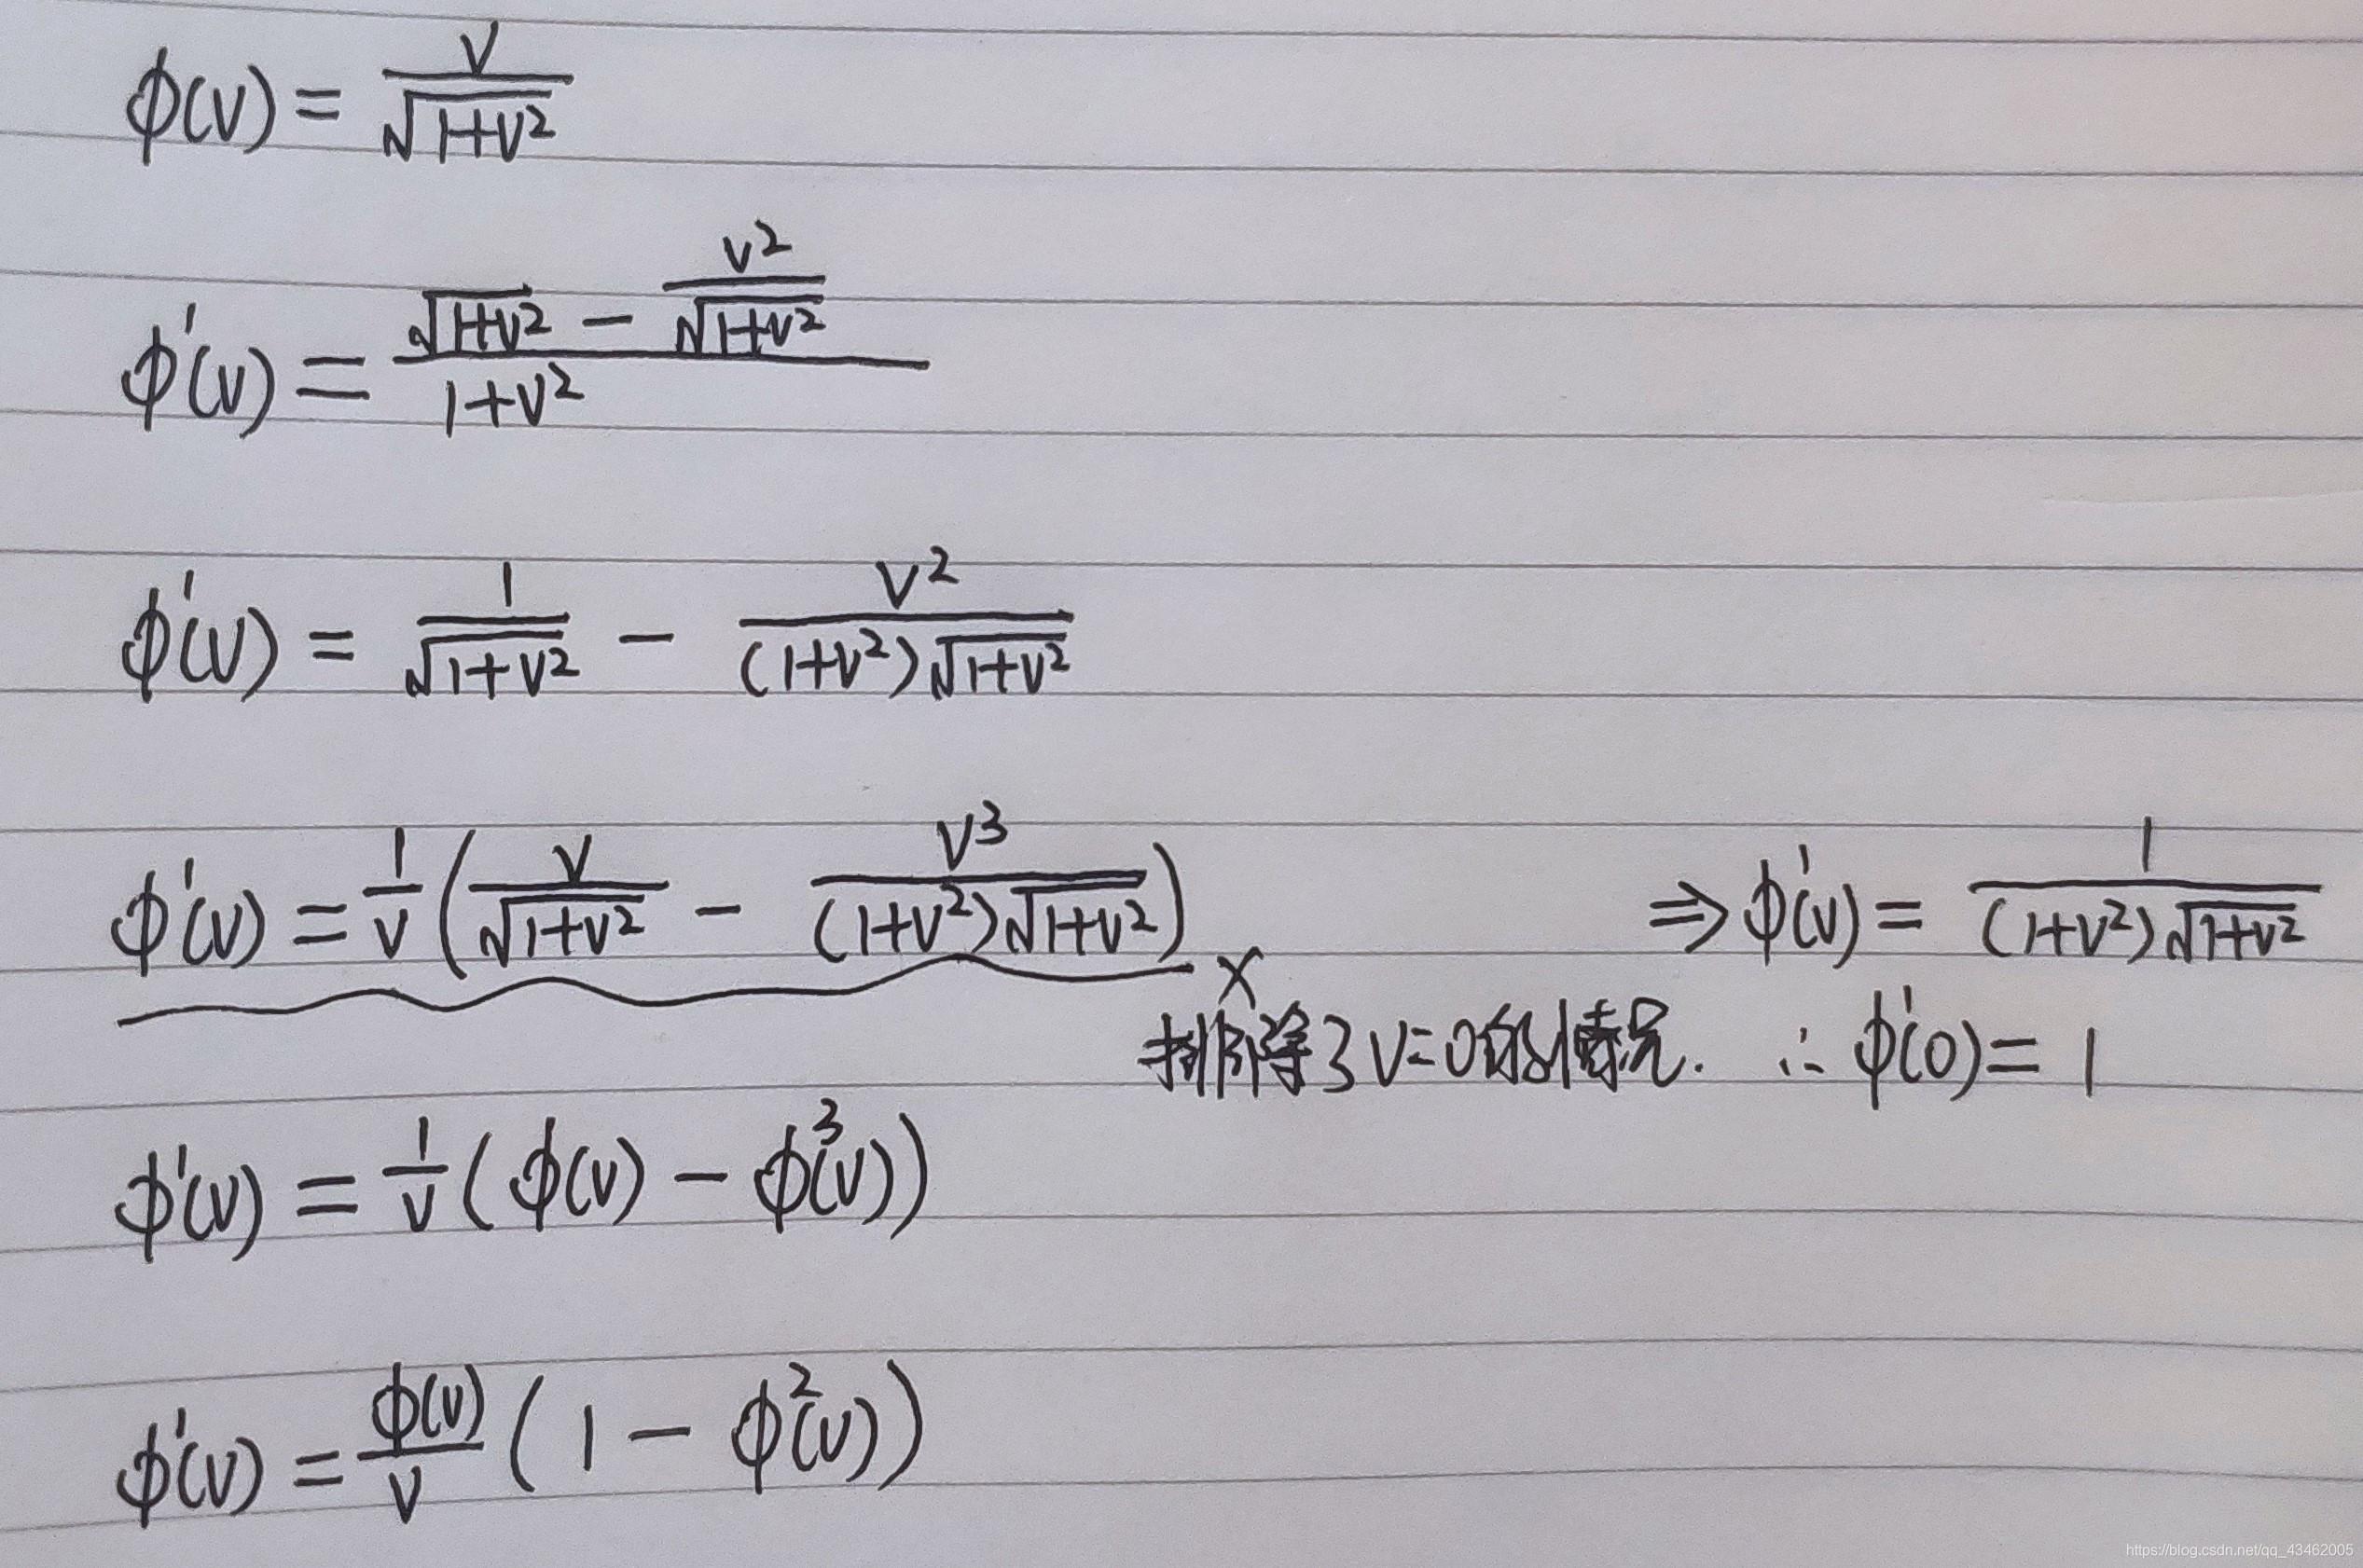 φ(v) = v / √(1+v²)
φ'(v) = (√(1+v²) − v²/√(1+v²)) / (1+v²)
φ'(v) = 1/√(1+v²) − v²/((1+v²)√(1+v²))
φ'(v) = 1/v (v/√(1+v²) − v³/((1+v²)√(1+v²))) ⇒ φ'(v) = 1/((1+v²)√(1+v²))
×
排除了v=0的情况. ∴ φ'(0) = 1
φ'(v) = 1/v (φ(v) − φ³(v))
φ'(v) = φ(v)/v (1 − φ²(v))
https://blog.csdn.net/qq_43462005